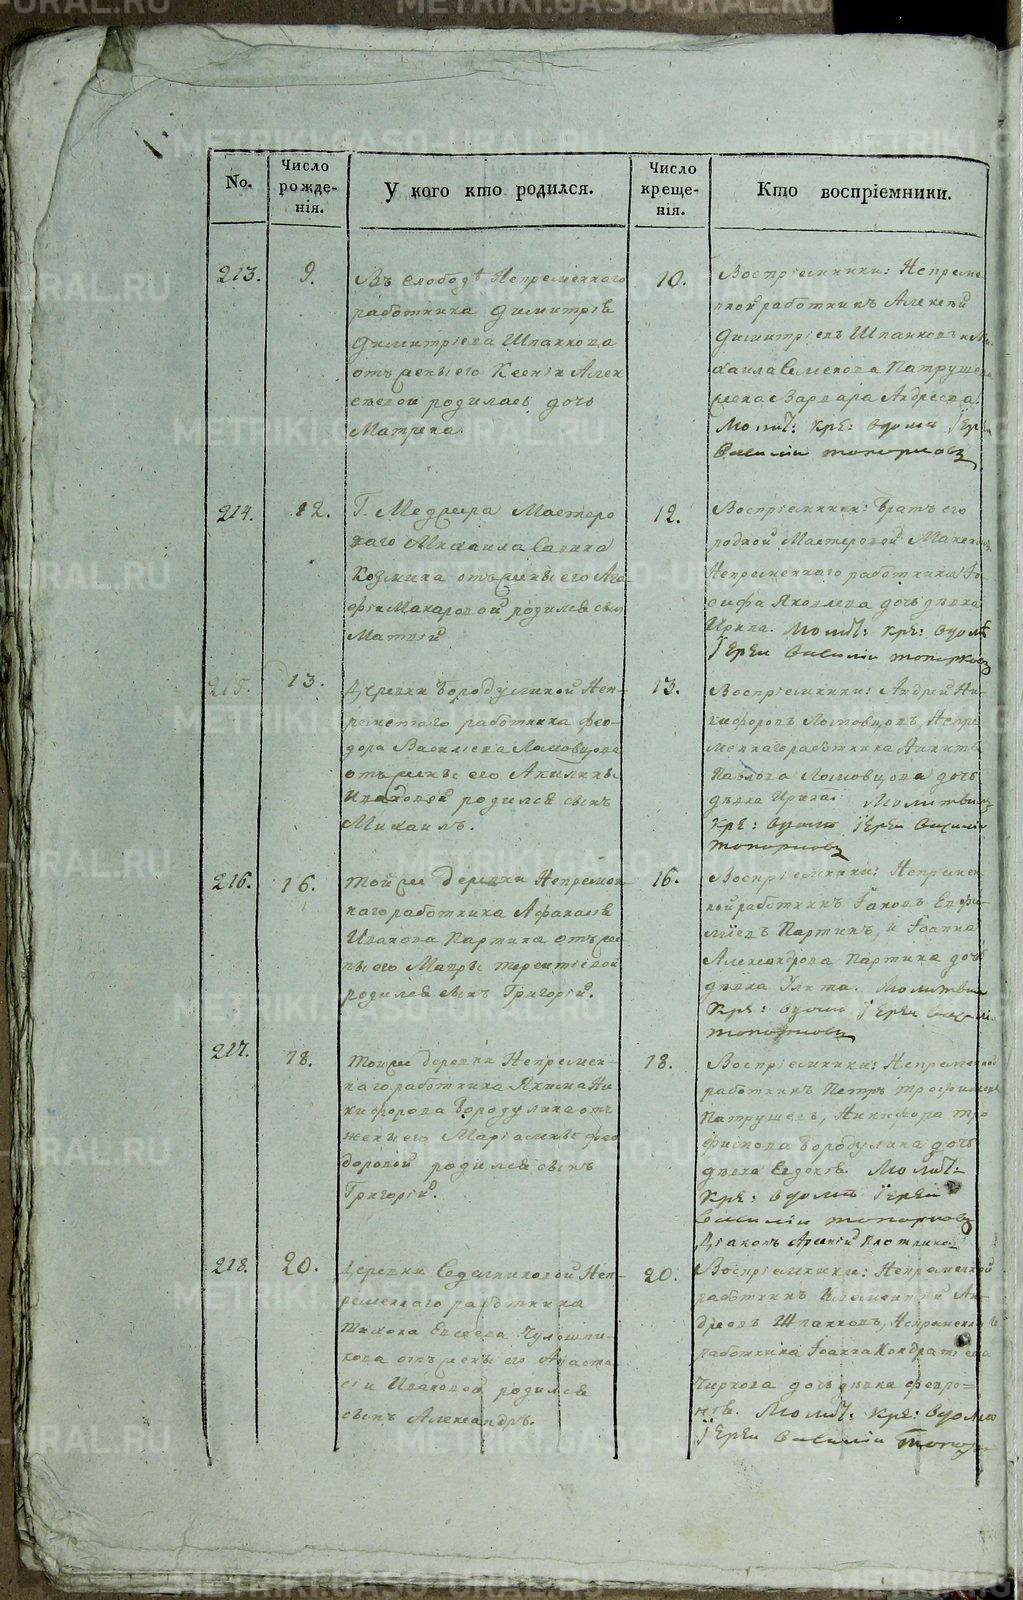 No.
Число рожде-нія.
У кого кто родился.
Число креще-нія.
Кто воспріемники.
213.
9.
Въ слободѣ Непременнаго
работника Димитрія
Димитріева Шпанкова
отъ жены его Ксеніи Алек
сѣевой родилась дочь
Матрена.
10.
Воспріемники: Непреме
нной работникъ Алексѣй
Димитріевъ Шпанковъ и Ми
хаила Семенова Патрушева
жена Варвара Андреева.
Молит: кре: вдомѣ Іер
Василіи Топорковъ
214.
12.
Г. Меджера Мастеро
ваго Михаила Савина
Козмина отъ жены его Ага
фіи Макаровой родился сынъ
Матвѣй
12.
Воспріемники: Братъ его
родной Мастеровой
Непременнаго работника Іо
сифа Яковлева дочь дѣвка
Ирина. Молит: кре: вдомѣ
Іерей Василіи Топорковъ
215.
13.
Деревни Бородулиной Неп-
ременнаго работника Фео-
дора Василіева Ломовцова
отъ жены его Акилины
Ивановой родился сынъ
Михаилъ.
13.
Воспріемники: Андрей Ни-
кифоровъ Ломовцовъ, Непре
меннаго работника Никиты
Павлова Ломовцова дочь
дѣвка Ирина. Молитвилъ
кре: вдомѣ Іерей Василіи
Топорковъ
216.
16.
Той же деревни Непремен
наго работника Афанасія
Иванова Партина отъ же
ны его Мавры Терентіевой
родился сынъ Григорій.
16.
Воспріемники: Непремен
ной работникъ Іаковъ Евфи
міевъ Партинъ, и Іоанна
Александрова Партина дочь
дѣвка Улита. Молитвил
кре: вдомѣ Іерей Василі
Топорковъ
217.
18.
Той же деревни Непремен-
наго работника Якима Ни
кифорова Бородулина отъ
жены его Маріамны Фео
доровой родился сынъ
Григорій.
18.
Воспріемники: Непременной
работникъ Петръ Трофимовъ
Патрушевъ, Никифора Тро
фимова Бородулина дочь
дѣвка Евдокія. Молит:
кре: вдомѣ Іерей
Василіи Топорковъ
Діаконъ Арсеній Плотников
218.
20.
Деревни Седельниковой Неп-
ременнаго работника
Тихона Евсеева Чулошни-
кова отъ жены его Анаста
сіи Ивановой родился
сынъ Александръ.
20.
Воспріемники: Непременной
работникъ Климентій Ан-
дреевъ Шпанковъ, Непременнаго
работника Іоанна Кондратіева
Чиркова дочь дѣвка Февро-
нія. Молит: кре: вдомѣ
Іерей Василіи Топор
METRIKI.GASO-URAL.RU